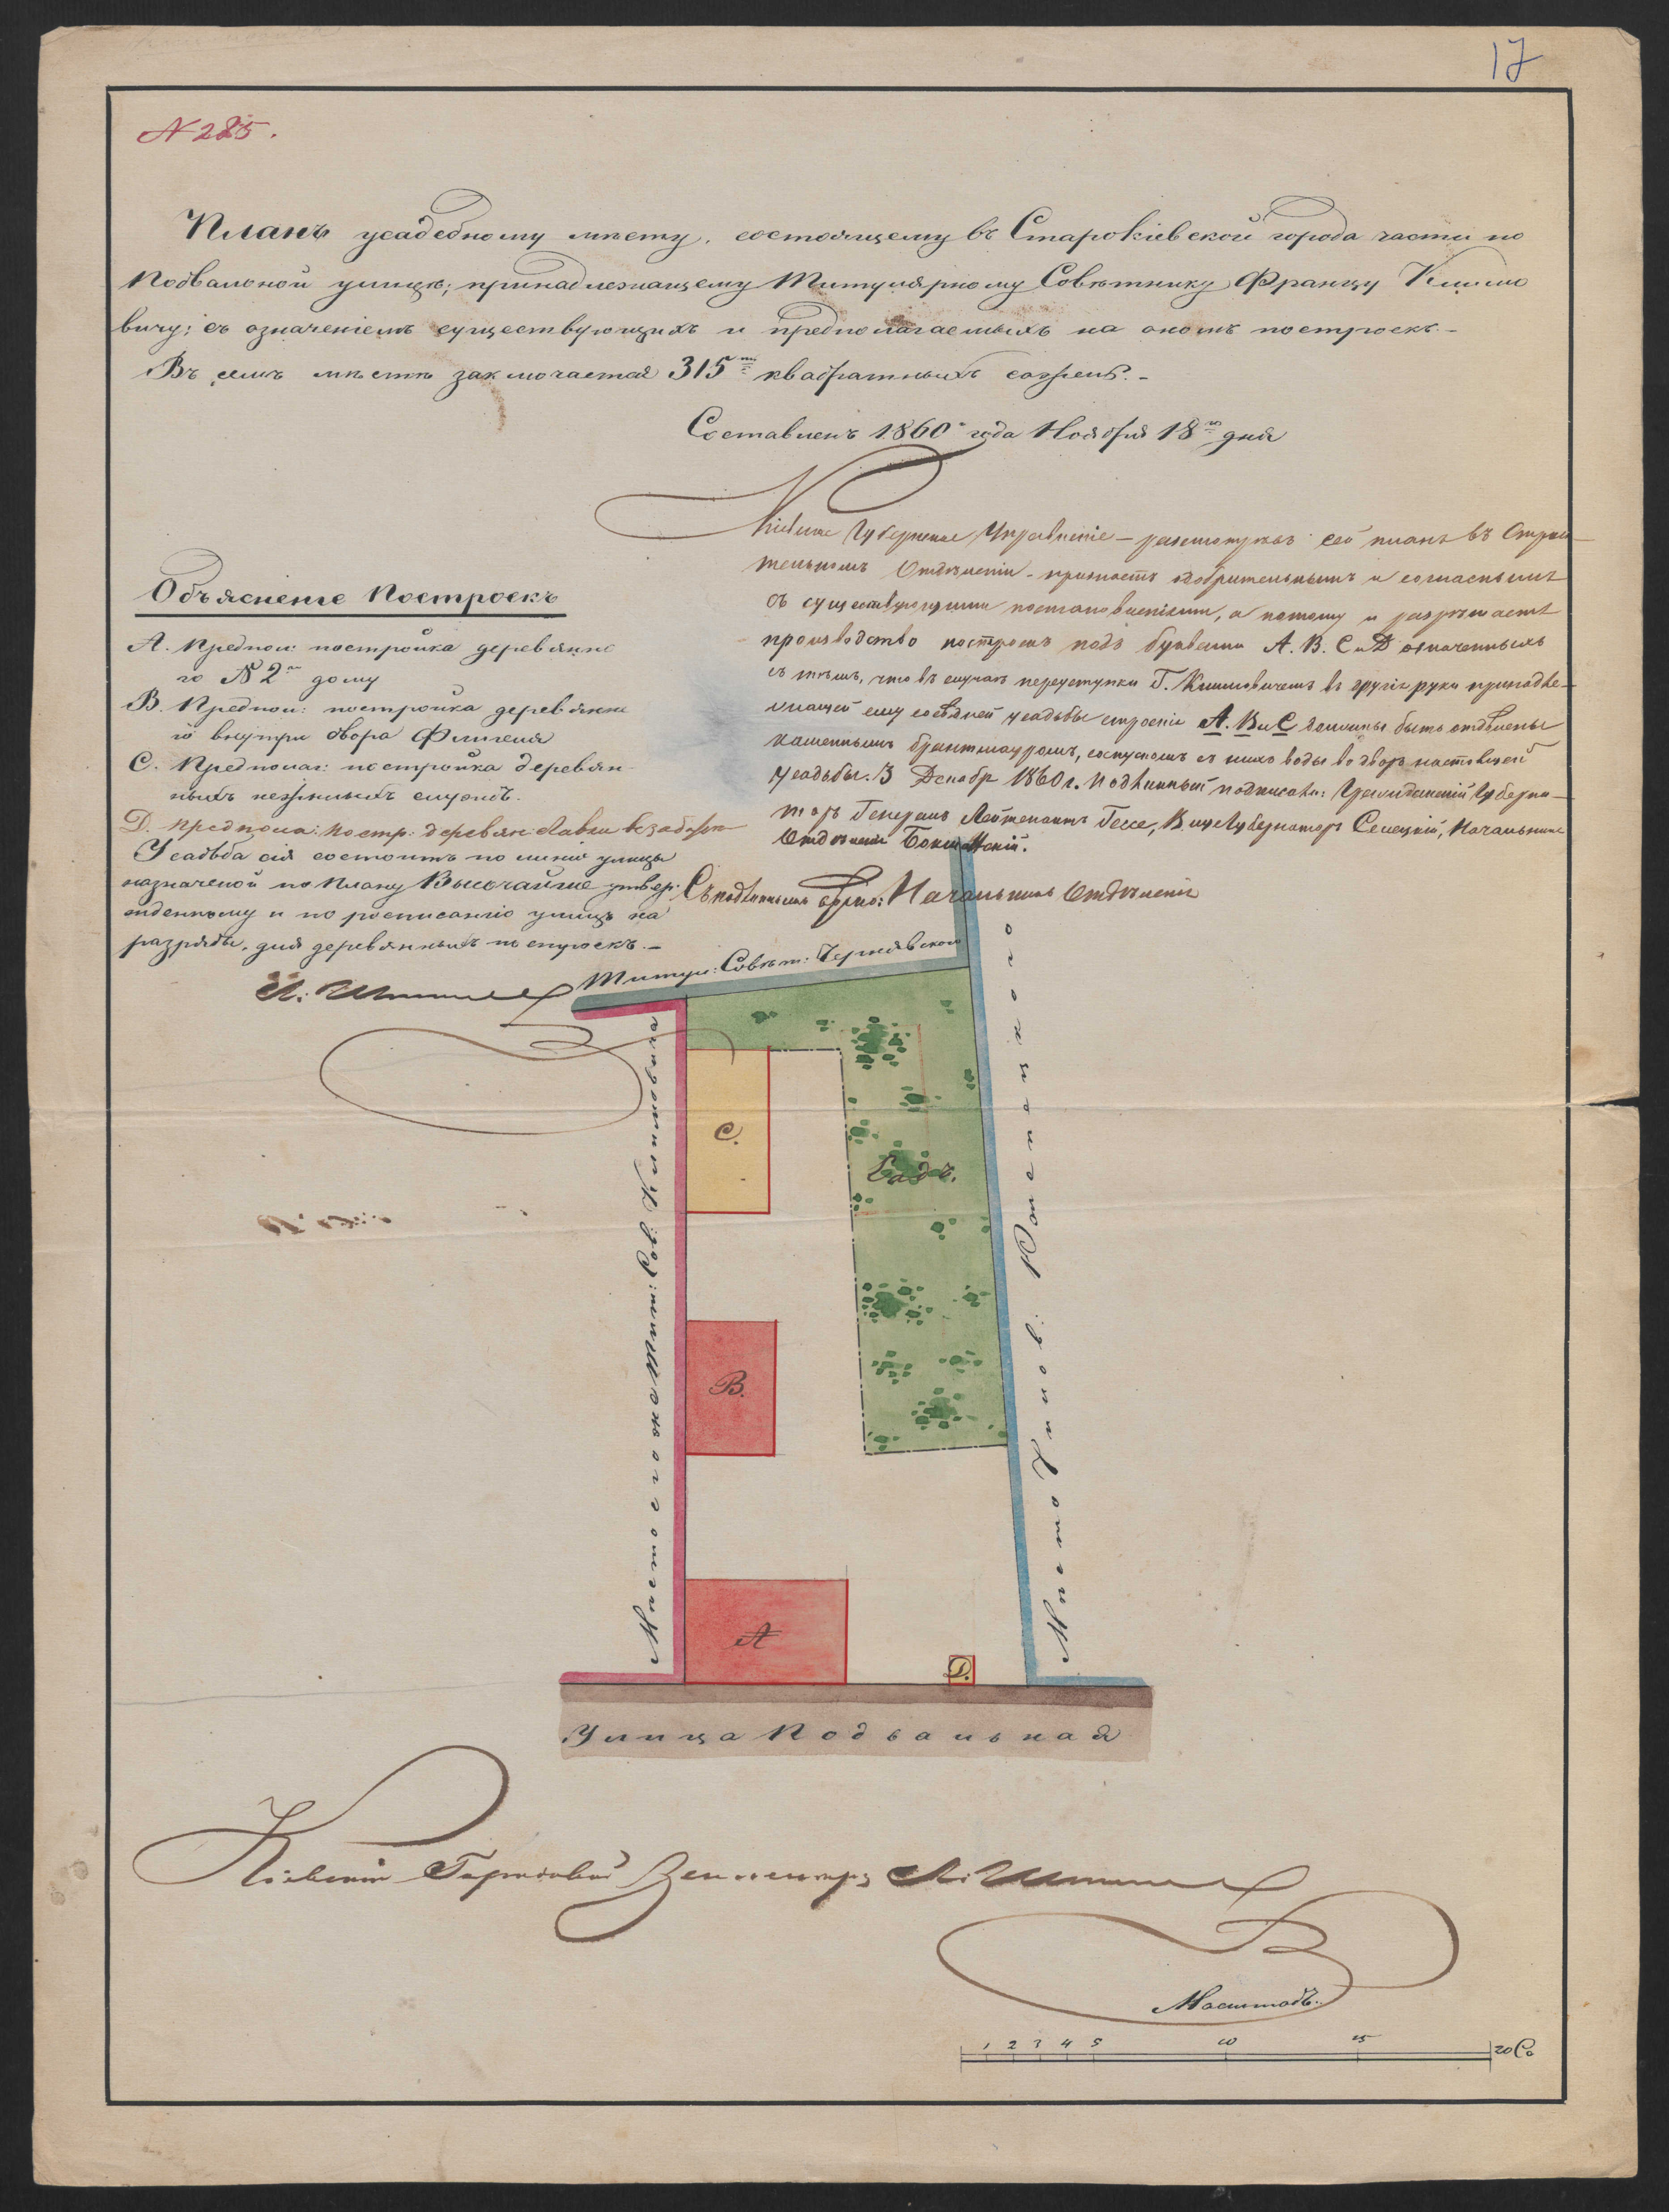 17
N 285.
Планъ усадебному мѣсту, состоящему въ Старокіевской города части по
Подвальной улицѣ; принадлежащему Титулярному Совѣтнику Францу Климо
вичу; съ означеніемъ существующихъ и предполагаемыхъ на ономъ построекъ.-
Въ семъ мѣстѣ заключается 315ть квадратныхъ сажень.-
Составленъ 1860го года Ноября 18го дня
Кіевское Губернское Управленіе - разсмотрѣвъ сей планъ въ Строи
тельномъ Отдѣленіи - признаетъ одобрительнымъ и согласнымъ
съ существующими постановленіями, а потому и разрѣшаетъ
производство построекъ подъ буквами А. В. С и Д означенныхъ
съ тѣмъ, что въ случаѣ переуступки Г. Климовичемъ въ другія руки принадле-
жащей ему сосѣдней усадьбы строенія А. В и С должны быть отдѣлены
каменнымъ брантмауромъ, со спускомъ съ нихъ воды во дворъ настоящей
усадьбы. 3 Декабр 1860 г. Подлинный подписали: Гражданскій Губерна-
торъ Генералъ Лейтенантъ Гессе, Вице Губернаторъ Селецкій, Начальникъ
Отдѣленія
Съ подлиннымъ вѣрно: Начальникъ Отдѣленія
Объясненіе Построекъ
А. Предпол: постройка деревянна
го N 2го дому
В. Предпол: постройка деревянна
го внутри двора Флигеля
С. Предполаг: постройка деревян
ныхъ нежилыхъ службъ.
D. предпола: постр: деревян: лавки
Усадьба сія состоитъ по линіи улицы
назначеной по Плану Высочайше утвер:
жденному и по росписанію улицъ на
разряды, для деревянныхъ построекъ.-
Титул: Совѣт: Чернявского
Мѣсто его же Тит: Сов: Климовича
Мѣсто Чинов:
С.
Садъ.
В.
А
D.
Улица Подвальная
Кіевскій Городовой Землемѣръ
Масштабъ.
1 2 3 4 5 10 15 20 Са